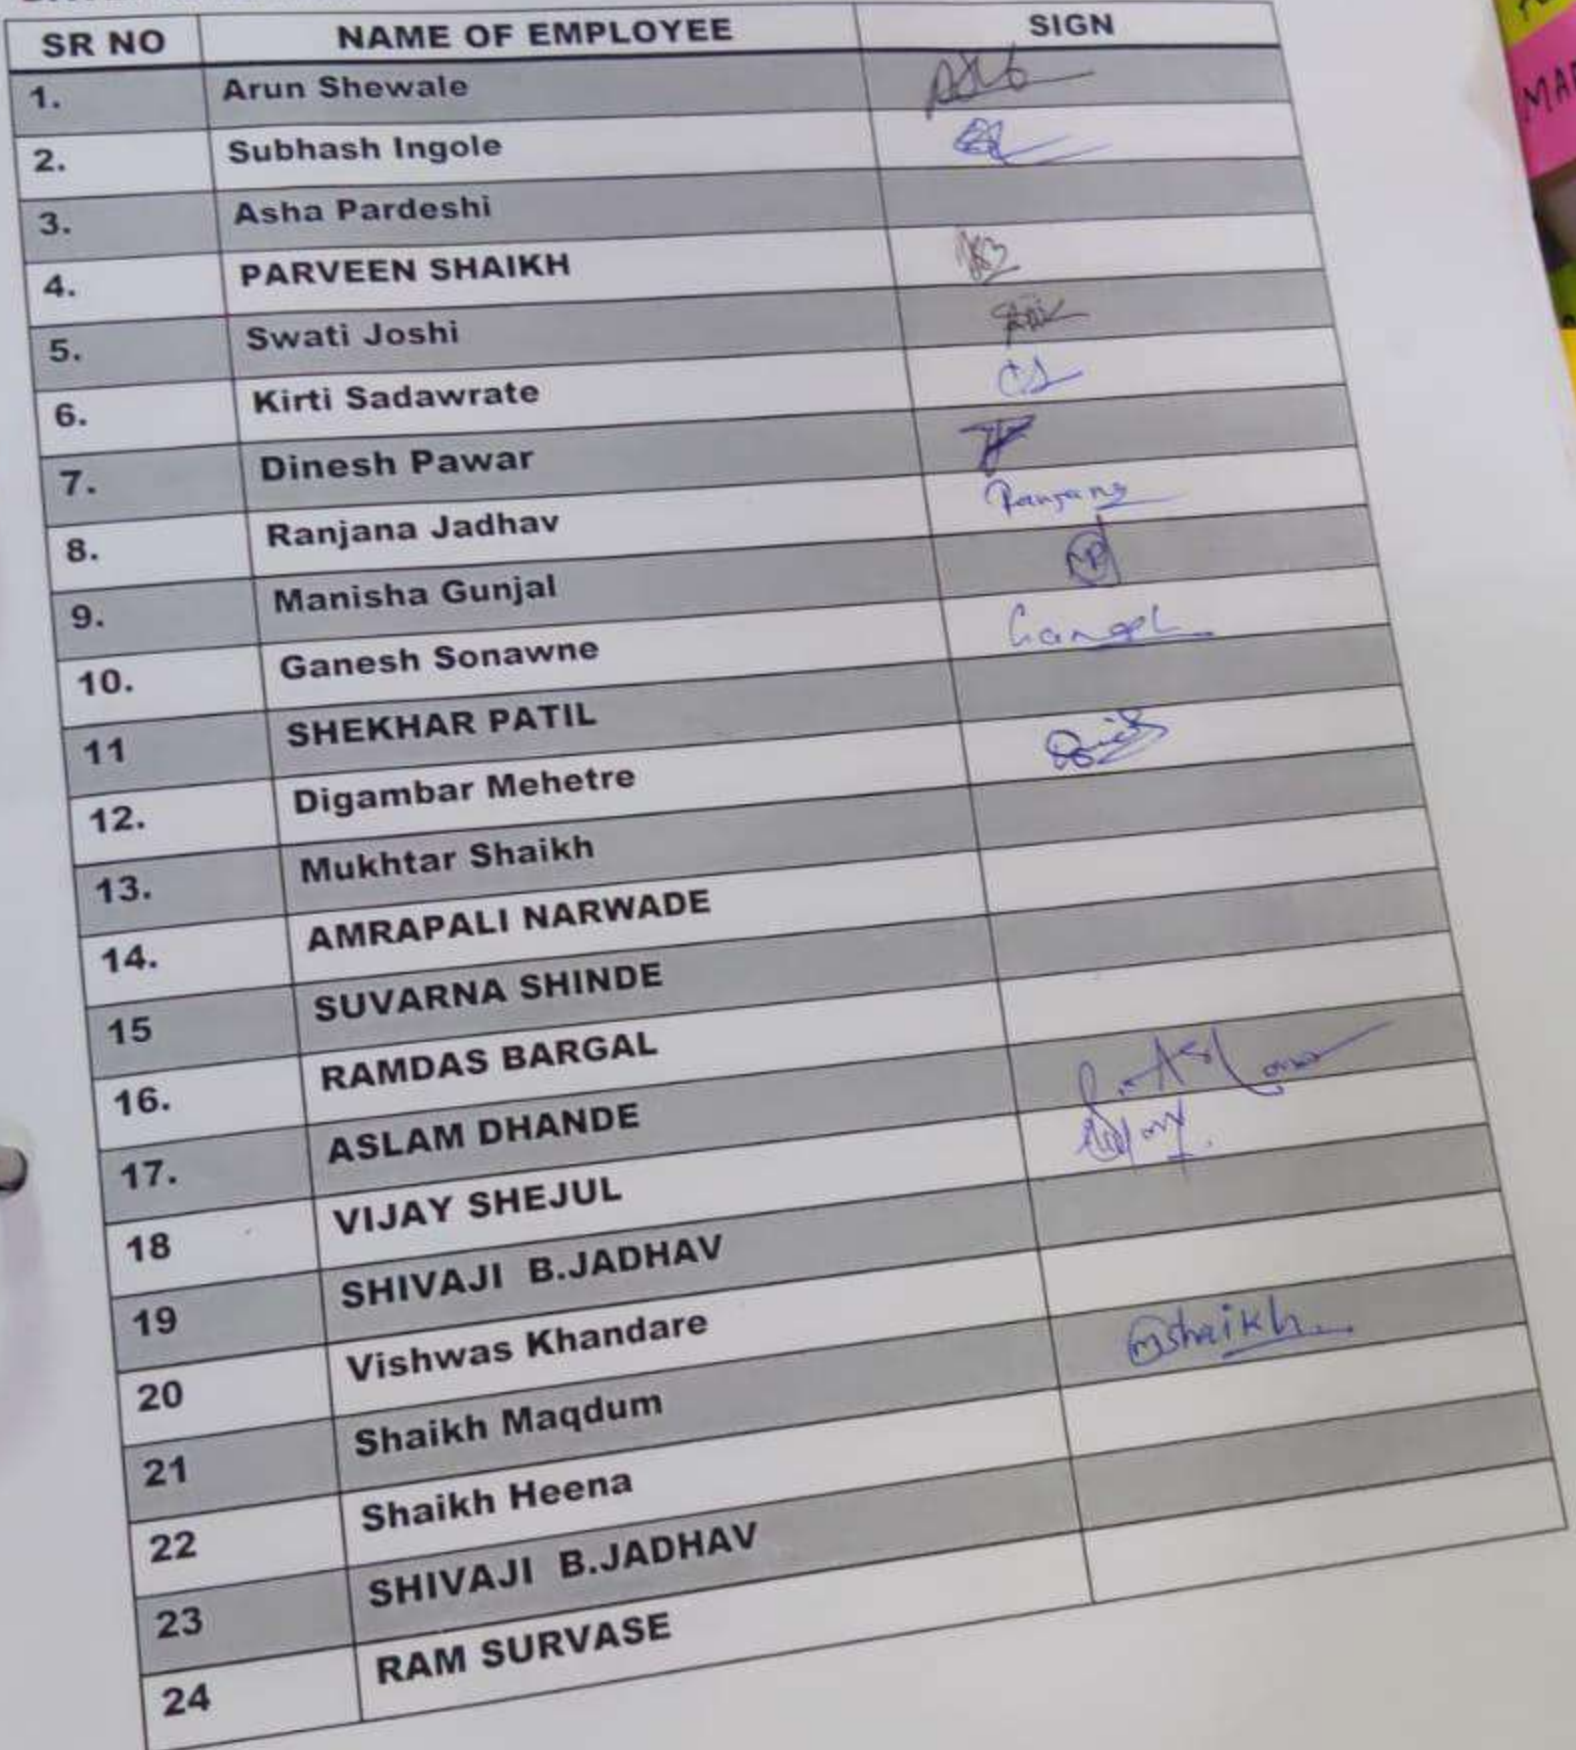 SR NO NAME OF EMPLOYEE SIGN
1. Arun Shewale
2. Subhash Ingole
3. Asha Pardeshi
4. PARVEEN SHAIKH
5. Swati Joshi
6. Kirti Sadawrate
7. Dinesh Pawar
8. Ranjana Jadhav Ranjana
9. Manisha Gunjal
10. Ganesh Sonawne Ganesh
11 SHEKHAR PATIL
12. Digambar Mehetre
13. Mukhtar Shaikh
14. AMRAPALI NARWADE
15 SUVARNA SHINDE
16. RAMDAS BARGAL
17. ASLAM DHANDE
18 VIJAY SHEJUL
19 SHIVAJI B.JADHAV
20 Vishwas Khandare
21 Shaikh Maqdum mshaikh
22 Shaikh Heena
23 SHIVAJI B.JADHAV
24 RAM SURVASE